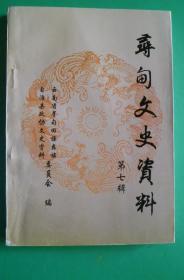 寻甸文史资料
第七辑
云南省寻甸回族彝族
自治县政协文史资料委员会 编